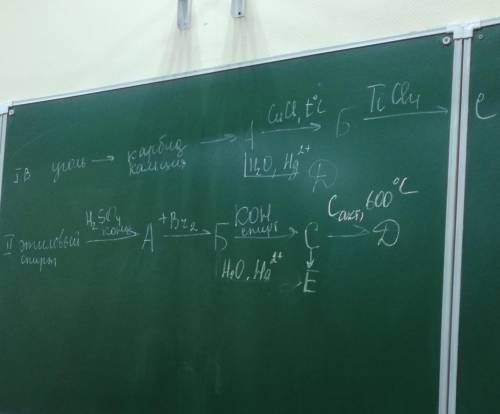 I В уголь → карбид кальция → A CuCl, t°C → Б TiCl₄ → C
H₂O, Hg²⁺
II этиловый спирт H₂SO₄ конц → A +Br₂ → Б KOH спирт → C Cакт, 600°C → D
H₂O, Hg²⁺ → E